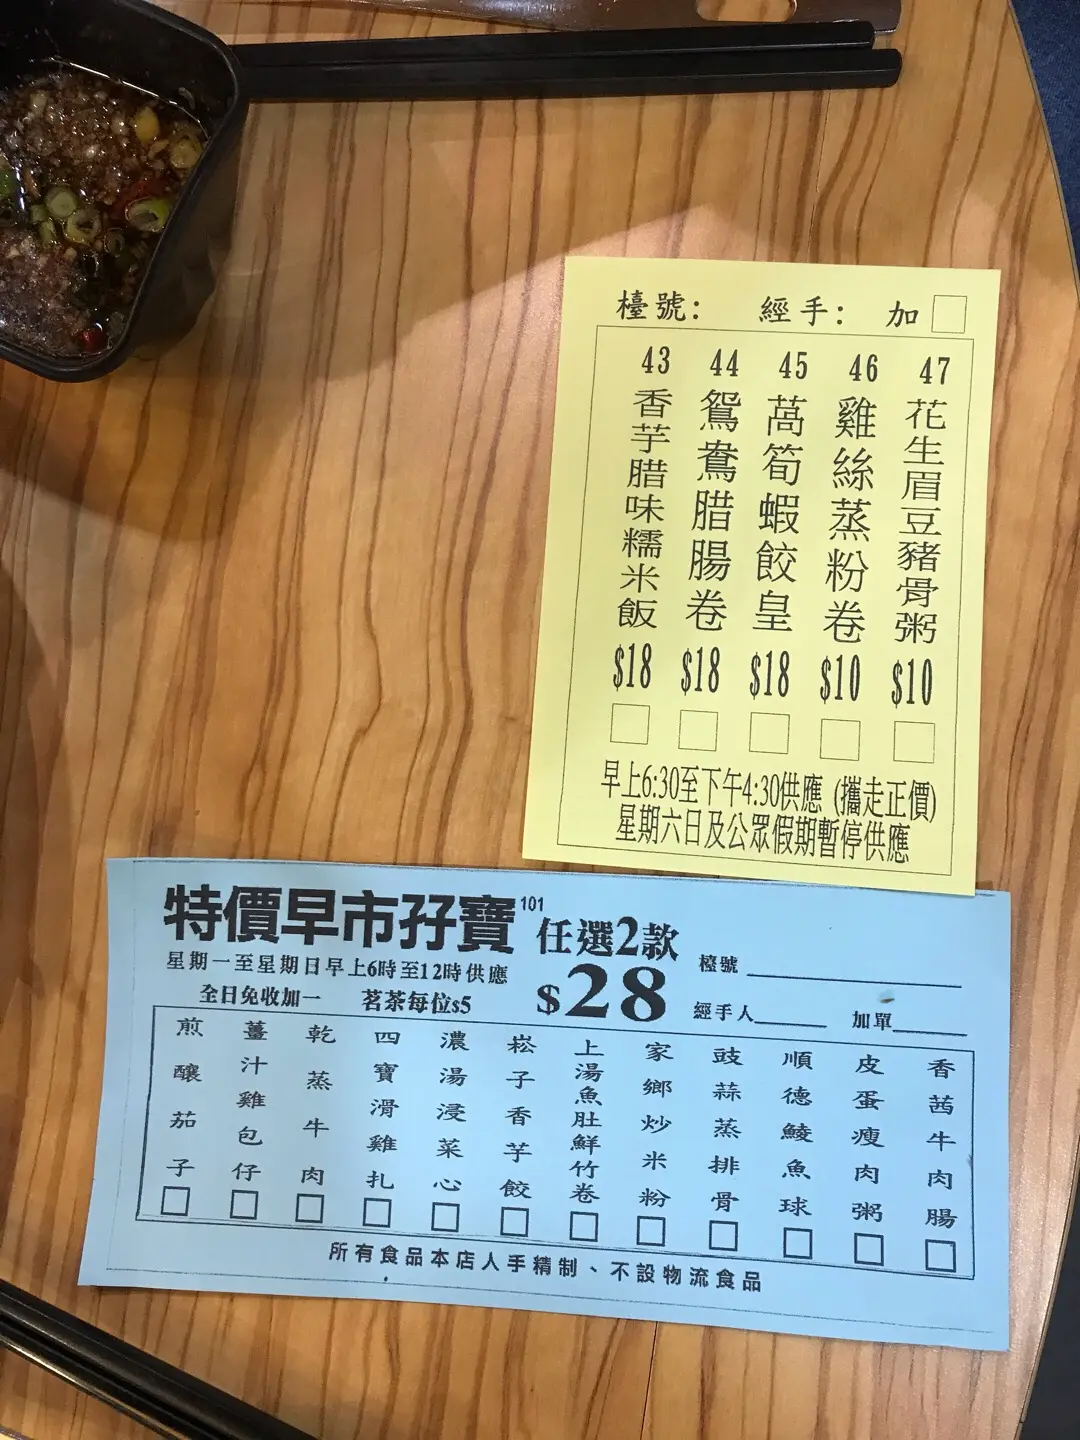 檯號: 經手: 加
43 香芋腊味糯米飯 $18
44 鴛鴦腊腸卷 $18
45 萵筍蝦餃皇 $18
46 雞絲蒸粉卷 $10
47 花生眉豆豬骨粥 $10
早上6:30至下午4:30供應 (攜走正價)
星期六日及公眾假期暫停供應
特價早市孖寶101 任選2款
星期一至星期日早上6時至12時供應
全日免收加一 茗茶每位$5
$28
檯號
經手人 加單
煎釀茄子
薑汁雞包仔
乾蒸牛肉
四寶滑雞扎
濃湯浸菜心
崧子香芋餃
上湯魚肚鮮竹卷
家鄉炒米粉
豉蒜蒸排骨
順德鯪魚球
皮蛋瘦肉粥
香茜牛肉腸
所有食品本店人手精制、不設物流食品